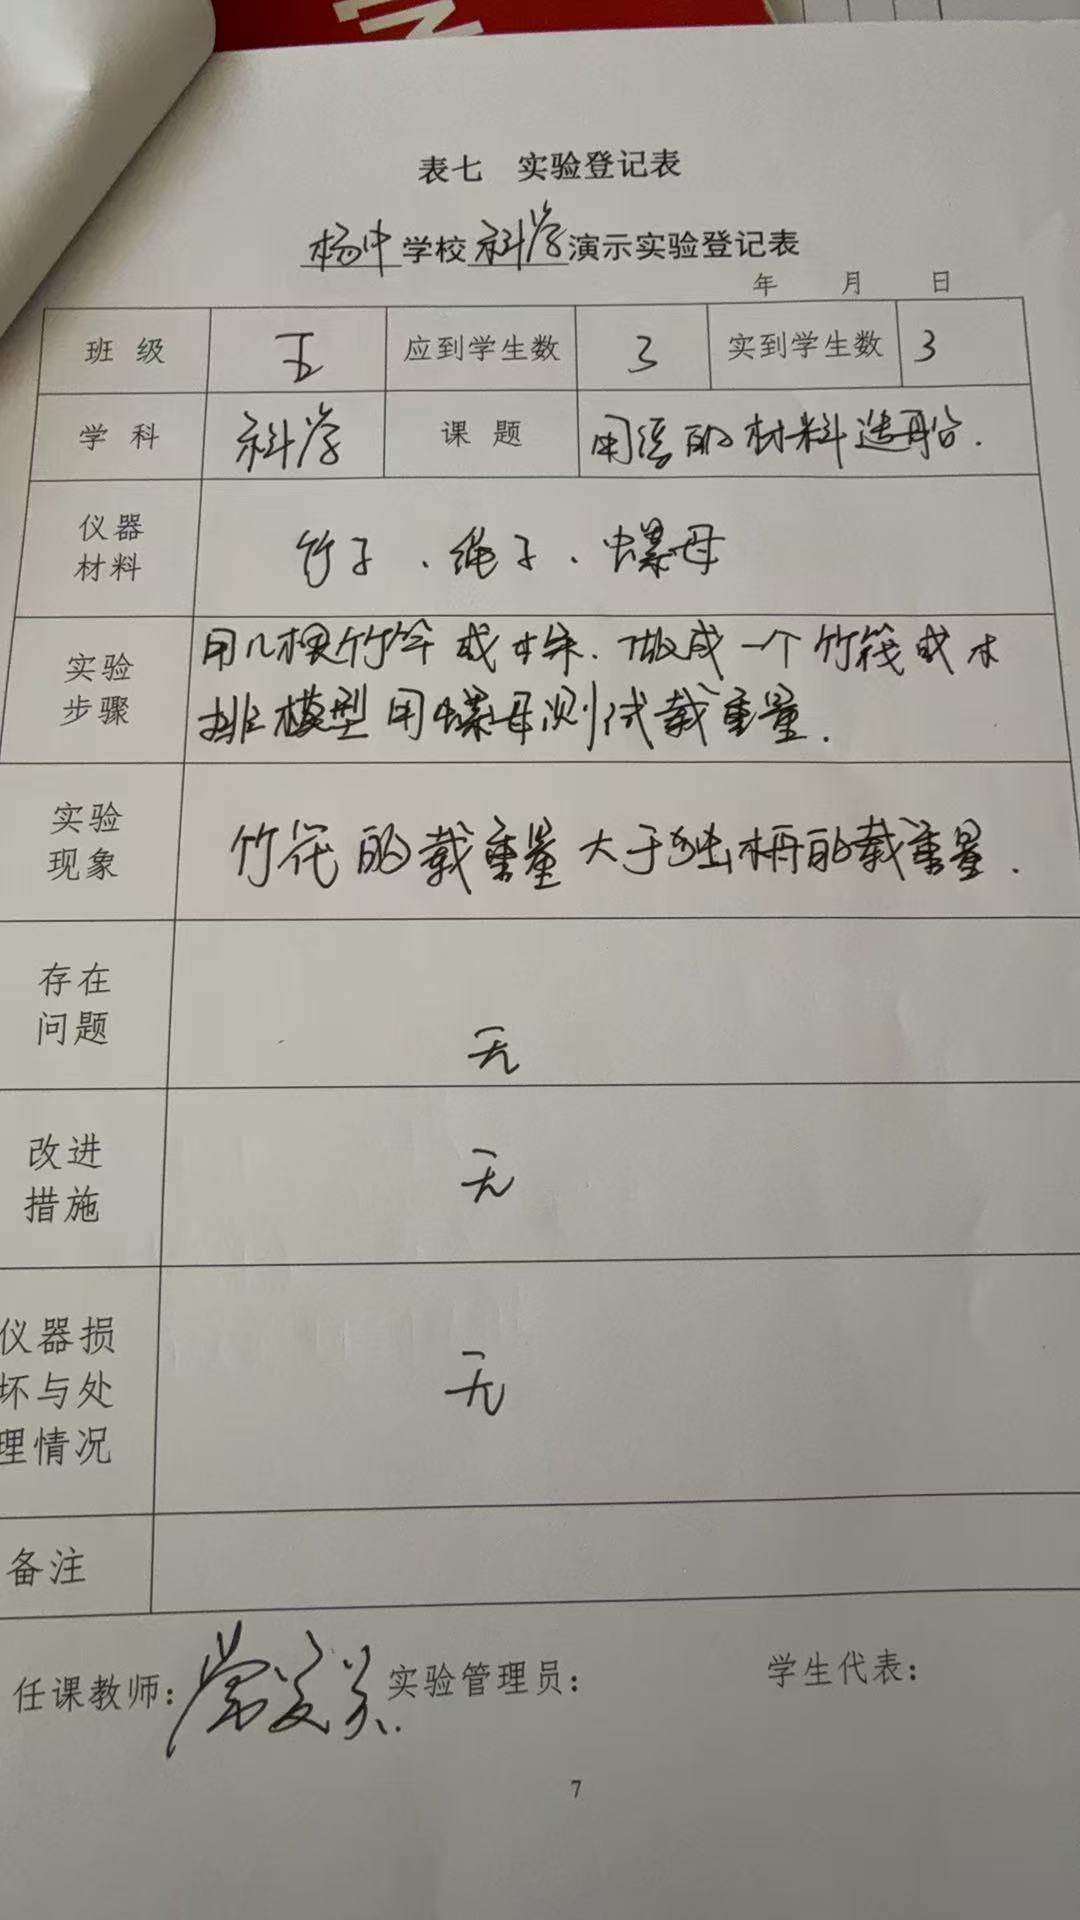 表七 实验登记表
杨中学校科学演示实验登记表
年 月 日
班 级 五 应到学生数 3 实到学生数 3
学 科 科学 课 题 用浮的材料造船.
仪器
材料
竹子、绳子、螺母
实验
步骤
用几根竹竿或木条.做成一个竹筏或木
排模型用螺母测试载重量.
实验
现象
竹筏的载重量大于独木舟的载重量.
存在
问题
无
改进
措施
无
仪器损
坏与处
理情况
无
备注
任课教师: 实验管理员: 学生代表:
7